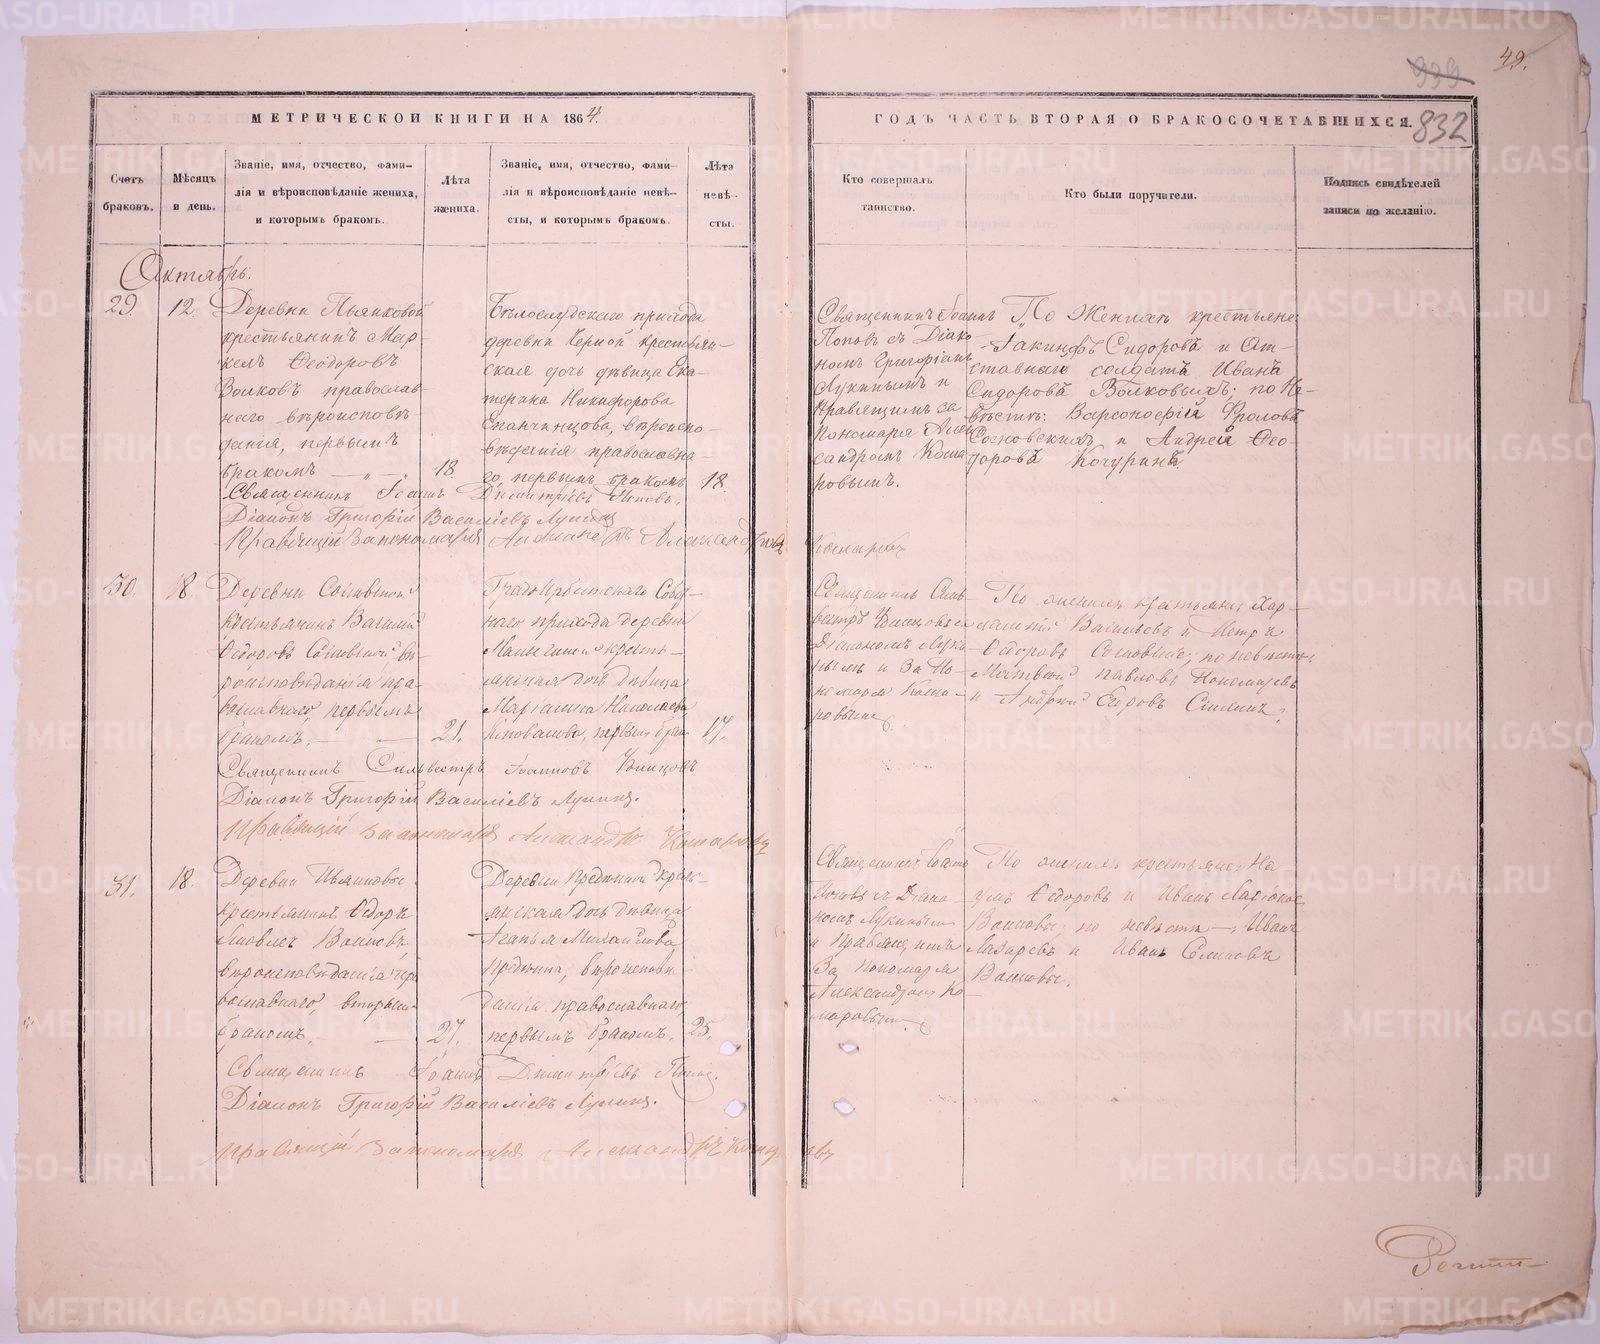 49.
939
МЕТРИЧЕСКОЙ КНИГИ НА 1864.
ГОДЪ ЧАСТЬ ВТОРАЯ О БРАКОСОЧЕТАВШИХСЯ.
832
Счетъ
браковъ.
Мѣсяцъ
и день.
Званіе, имя, отчество, фами-
лія и вѣроисповѣданіе жениха,
и которымъ бракомъ.
Лѣта
жениха.
Званіе, имя, отчество, фами-
лія и вѣроисповѣданіе невѣ-
сты, и которымъ бракомъ.
Лѣта
невѣ-
сты.
Кто совершалъ
таинство.
Кто были поручители.
Подпись свидѣтелей
записи по желанію.
Октябрь.
29.
12.
Деревни Пьянковой
крестьянинъ Мар-
келъ Ѳеодоровъ
Волковъ православ-
наго вѣроисповѣ-
данія, первымъ
бракомъ
18.
Бѣлослудскаго прихода
деревни крестьян-
ская дочь дѣвица Ека-
терина Никифорова
Епанчинцова, вѣроиспо-
вѣданія православна-
го, первымъ бракомъ
18.
Священникъ Іоаннъ
Поповъ съ Діако-
номъ Григоріемъ
Лукинымъ и
Правящимъ за
Пономаря Алек
сандромъ Кома
ровымъ.
По Женихѣ крестьяне
Іакинфъ Сидоровъ и От-
ставной солдатъ Иванъ
Сидоровъ Волковыхъ; по Не-
вѣстѣ: Варсонофій Фроловъ
Сосновскихъ и Андрей Ѳео-
доровъ Кочуринъ.
Священникъ Іоаннъ Димитріевъ Поповъ.
Діаконъ Григорій Василіевъ Лукинъ
Правящій за пономаря Александръ Александровъ Комаровъ
30.
18.
Деревни
Крестьянинъ Василій
Ѳедоровъ вѣ-
роисповѣданія пра-
вославнаго, первымъ
бракомъ.
21.
Градо Ирбитскаго Собор-
наго прихода деревни
кресть-
янская дочь дѣвица
Маріамна Николаева
первымъ брак
17.
Священникъ Силь-
вестръ
Діакономъ Луки-
нымъ и За По-
номаря Кома-
ровымъ
По женихѣ крестьяне Хар-
лампій Васильевъ и Петръ
Ѳедоровъ по невѣстѣ:
Павловъ Пономаревъ
и Андрей Егоровъ
Священникъ Сильвестръ Іоанновъ
Діаконъ Григорій Василіевъ Лукинъ.
Правящій за пономаря Александръ Комаровъ
31.
18.
Деревни Пьянковой
крестьянинъ Ѳедоръ
Яковлевъ Волковъ
вѣроисповѣданія пра
вославнаго, вторымъ
бракомъ.
27.
Деревни крест-
янская дочь дѣвица
Агапья Михайлова
вѣроисповѣ
данія православнаго
первымъ бракомъ.
25.
Священникъ Іоаннъ
Поповъ съ Діако-
номъ Лукинымъ
и Правящимъ
За Пономаря
Александромъ Ко-
маровымъ.
По женихѣ крестьяне; На
умъ Ѳедоровъ и Иванъ Ларіонов
Волковы; по невѣстѣ: Иванъ
Лазаревъ и Иванъ
Волковы.
Священникъ Іоаннъ Димитріевъ Поповъ.
Діаконъ Григорій Василіевъ Лукинъ.
Правящій За пономаря Александръ Комаровъ